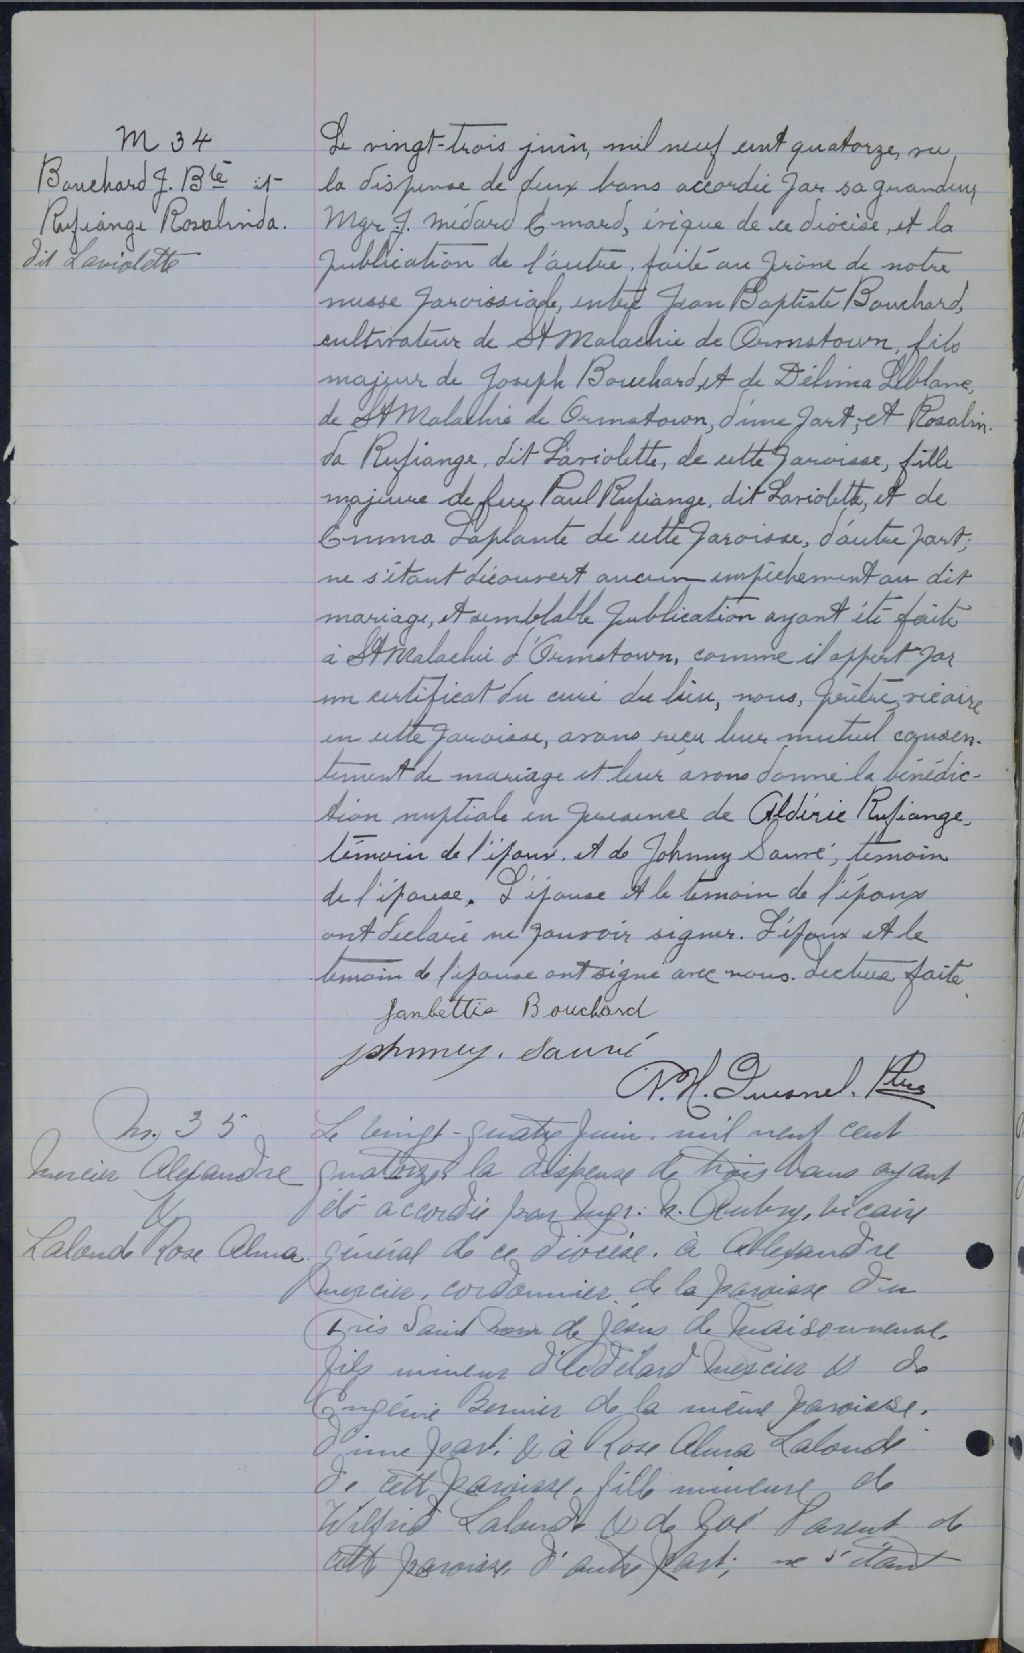 M 34
Bouchard J. Bte et
Rufiange Rosalinda.
dit Laviolette
Le vingt-trois juin, mil neuf cent quatorze, vu
la dispense de deux bans accordée par sa grandeur
Mgr J. Médard Emard, évêque de ce diocèse, et la
publication de l'autre, faite au prône de notre
messe paroissiale, entre Jean Baptiste Bouchard,
cultivateur de St Malachie de Ormstown, fils
majeur de Joseph Bouchard, et de Délima Leblanc,
de St Malachie de Ormstown, d'une part; et Rosalin-
da Rufiange, dit Laviolette, de cette paroisse, fille
majeure de feu Paul Rufiange, dit Laviolette, et de
Emma Laplante de cette paroisse, d'autre part;
ne s'étant découvert aucun empêchement au dit
mariage, et semblable publication ayant été faite
à St Malachie d'Ormstown, comme il appert par
un certificat du curé du lieu, nous, prêtre, vicaire
en cette paroisse, avons reçu leur mutuel consen-
tement de mariage et leur avons donné la bénédic-
tion nuptiale en présence de Aldéric Rufiange,
témoin de l'époux, et de Johnny Sauvé, témoin
de l'épouse. L'épouse et le témoin de l'époux
ont déclaré ne pouvoir signer. L'époux et le
témoin de l'épouse ont signé avec nous. Lecture faite.
Janbettis Bouchard
Johnney. Sauvé
N. H. Quesnel. Ptre
M. 35
Mercier Alexandre
&
Lalonde Rose Alma.
Le vingt-quatre Juin. mil neuf cent
quatorze, la dispense de trois bans ayant
été accordée par Mgr. Aubry, vicaire
général de ce diocèse, à Alexandre
Mercier, cordonnier, de la paroisse du
Très Saint Nom de Jésus de Maisonneuve,
fils mineur d'Adélard Mercier & de
Eugénie Bernier de la même paroisse,
d'une part, & à Rose Alma Lalonde
de cette paroisse, fille mineure de
Wilfrid Lalonde & de Zoé Parent de
cette paroisse, d'autre part; ne s'étant